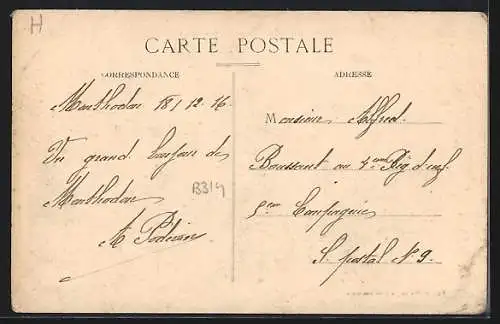 H
CARTE POSTALE
CORRESPONDANCE
ADRESSE
Monthodon 18/12.16.
Un grand bonjour de
Monthodon
A
B314
Monsieur Alfred
au 4eme Rég d'inf
5eme Compagnie
S. postal N° 9.